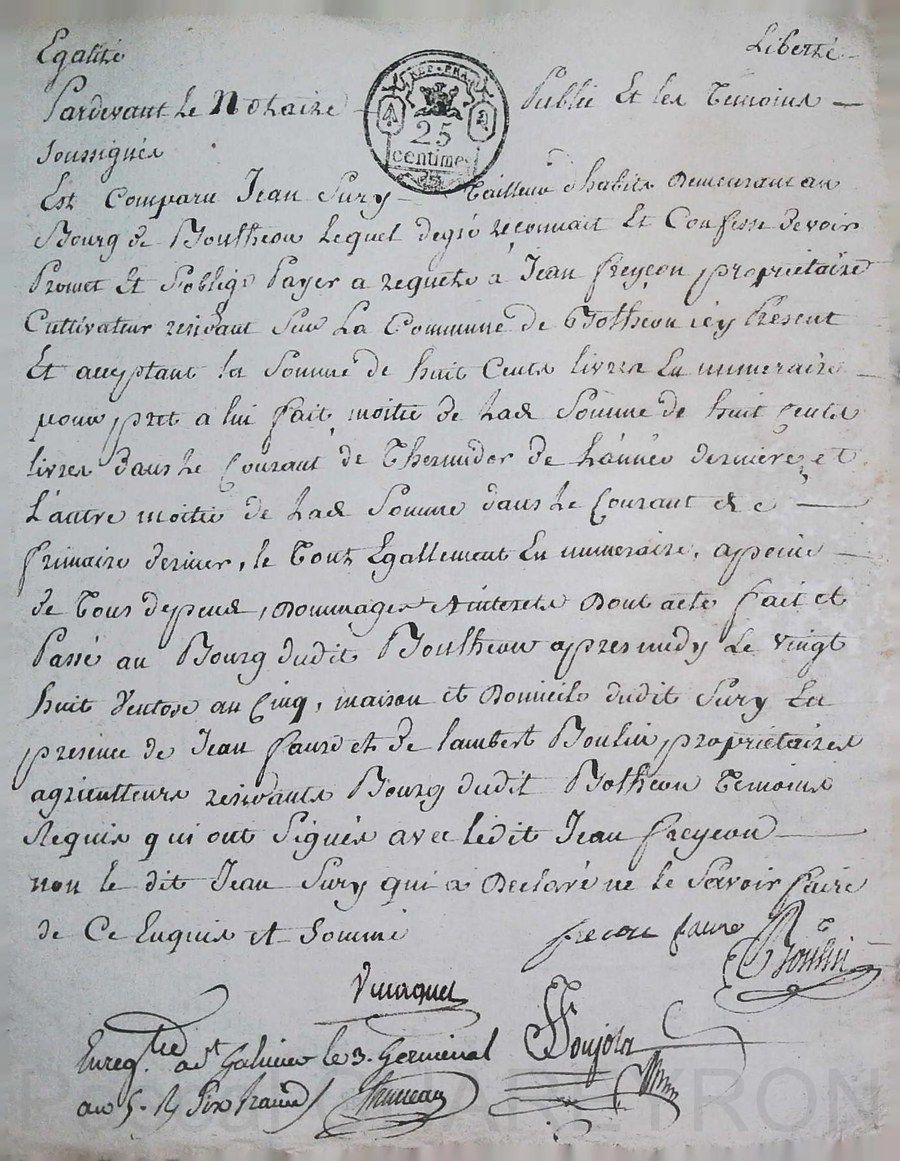 Egalité Liberté
Pardevant le Notaire Public Et les Temoins
Soussignés
REP. FRA.
25
centimes
Est Comparu Jean Sury Tailleur d'habits Demeurant au
Bourg de Boutheon lequel degré reconnait Et Confesse devoir
Promet Et S'oblige Payer a requete à Jean freyçon propriétaire
Cultivateur residant Sur La Commune de Botheon icy Présent
Et acceptant la Somme de huit Cents livres En numeraire
pour pret a lui fait, moitié de Lad Somme de huit Cents
livres dans Le Courant de Thermidor de L'année dernière, et
L'autre moitié de Lad Somme dans le Courant de
frimaire dernier, le Tout Egallement En numeraire, apeine
de Tous depend, Dommages et interets Dont acte fait et
Passé au Bourg dudit Boutheon apres midy Le vingt
huit Ventose an Cinq, maison et Domicile dudit Sury En
presence de Jean faure et de lambert Boulin propriétaires
agriculteurs residants Bourg dudit Botheon Temoins
Requis qui ont Signés avec ledit Jean freyçon
non le dit Jean Sury qui a Déclaré ne le Savoir faire
de Ce Enquis et Sommé
frecon faure Boulin
Enreg.tré a St Galmier le 3. Germinal
an 5. R Six francs